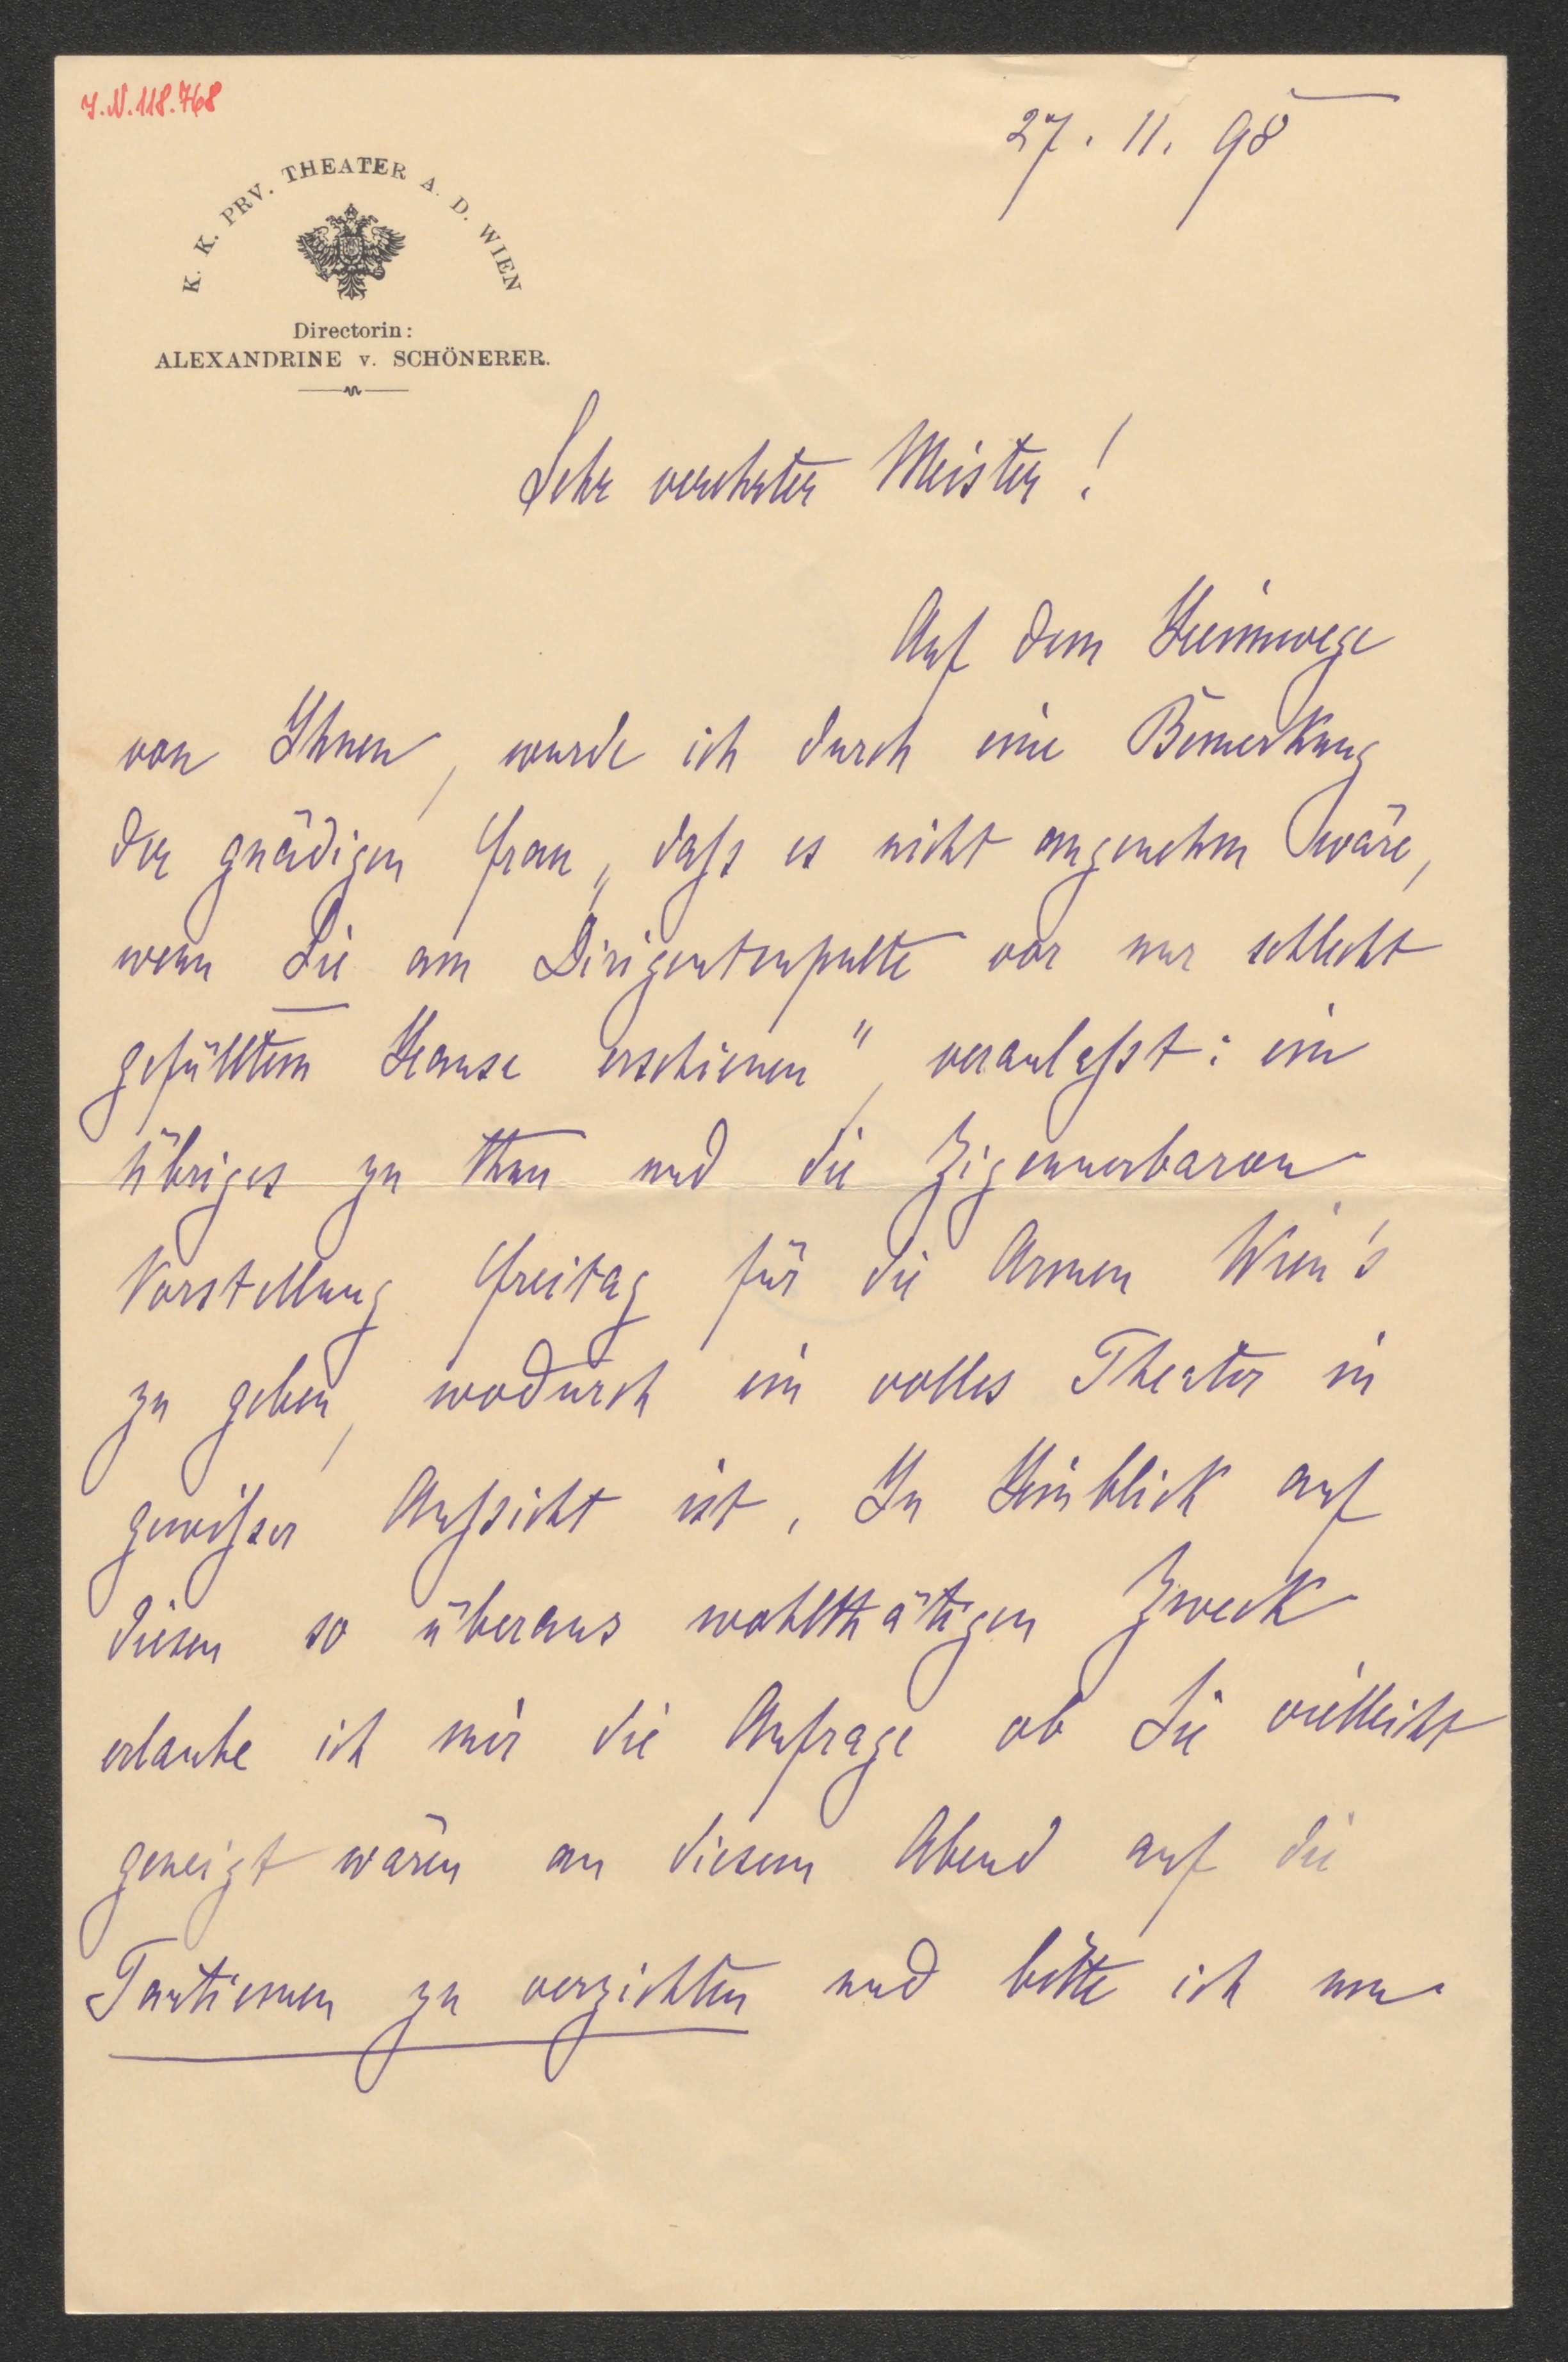 I.N. 118.768
27. 11. 95
K. K. PRV. THEATER A. D. WIEN
Directorin:
ALEXANDRINE v. SCHÖNERER.
Sehr verehrter Meister!
Auf dem Heimwege
von Ihnen, wurde ich durch eine Bemerkung
der gnädigen Frau „dass es nicht angenehm wäre,
wenn Sie am Dirigentenpulte vor nur schlecht
gefülltem Hause erschienen", veranlasst: ein
übriges zu thun und die Zigeunerbaron
Vorstellung Freitag für die Armen Wien's
zu geben, wodurch ein volles Theater in
gewisser Aussicht ist. In Hinblick auf
diesen so überaus wohlthätigen Zweck
erlaube ich mir die Anfrage ob Sie vielleicht
geneigt wären an diesem Abend auf die
Tantiemen zu verzichten und bitte ich um